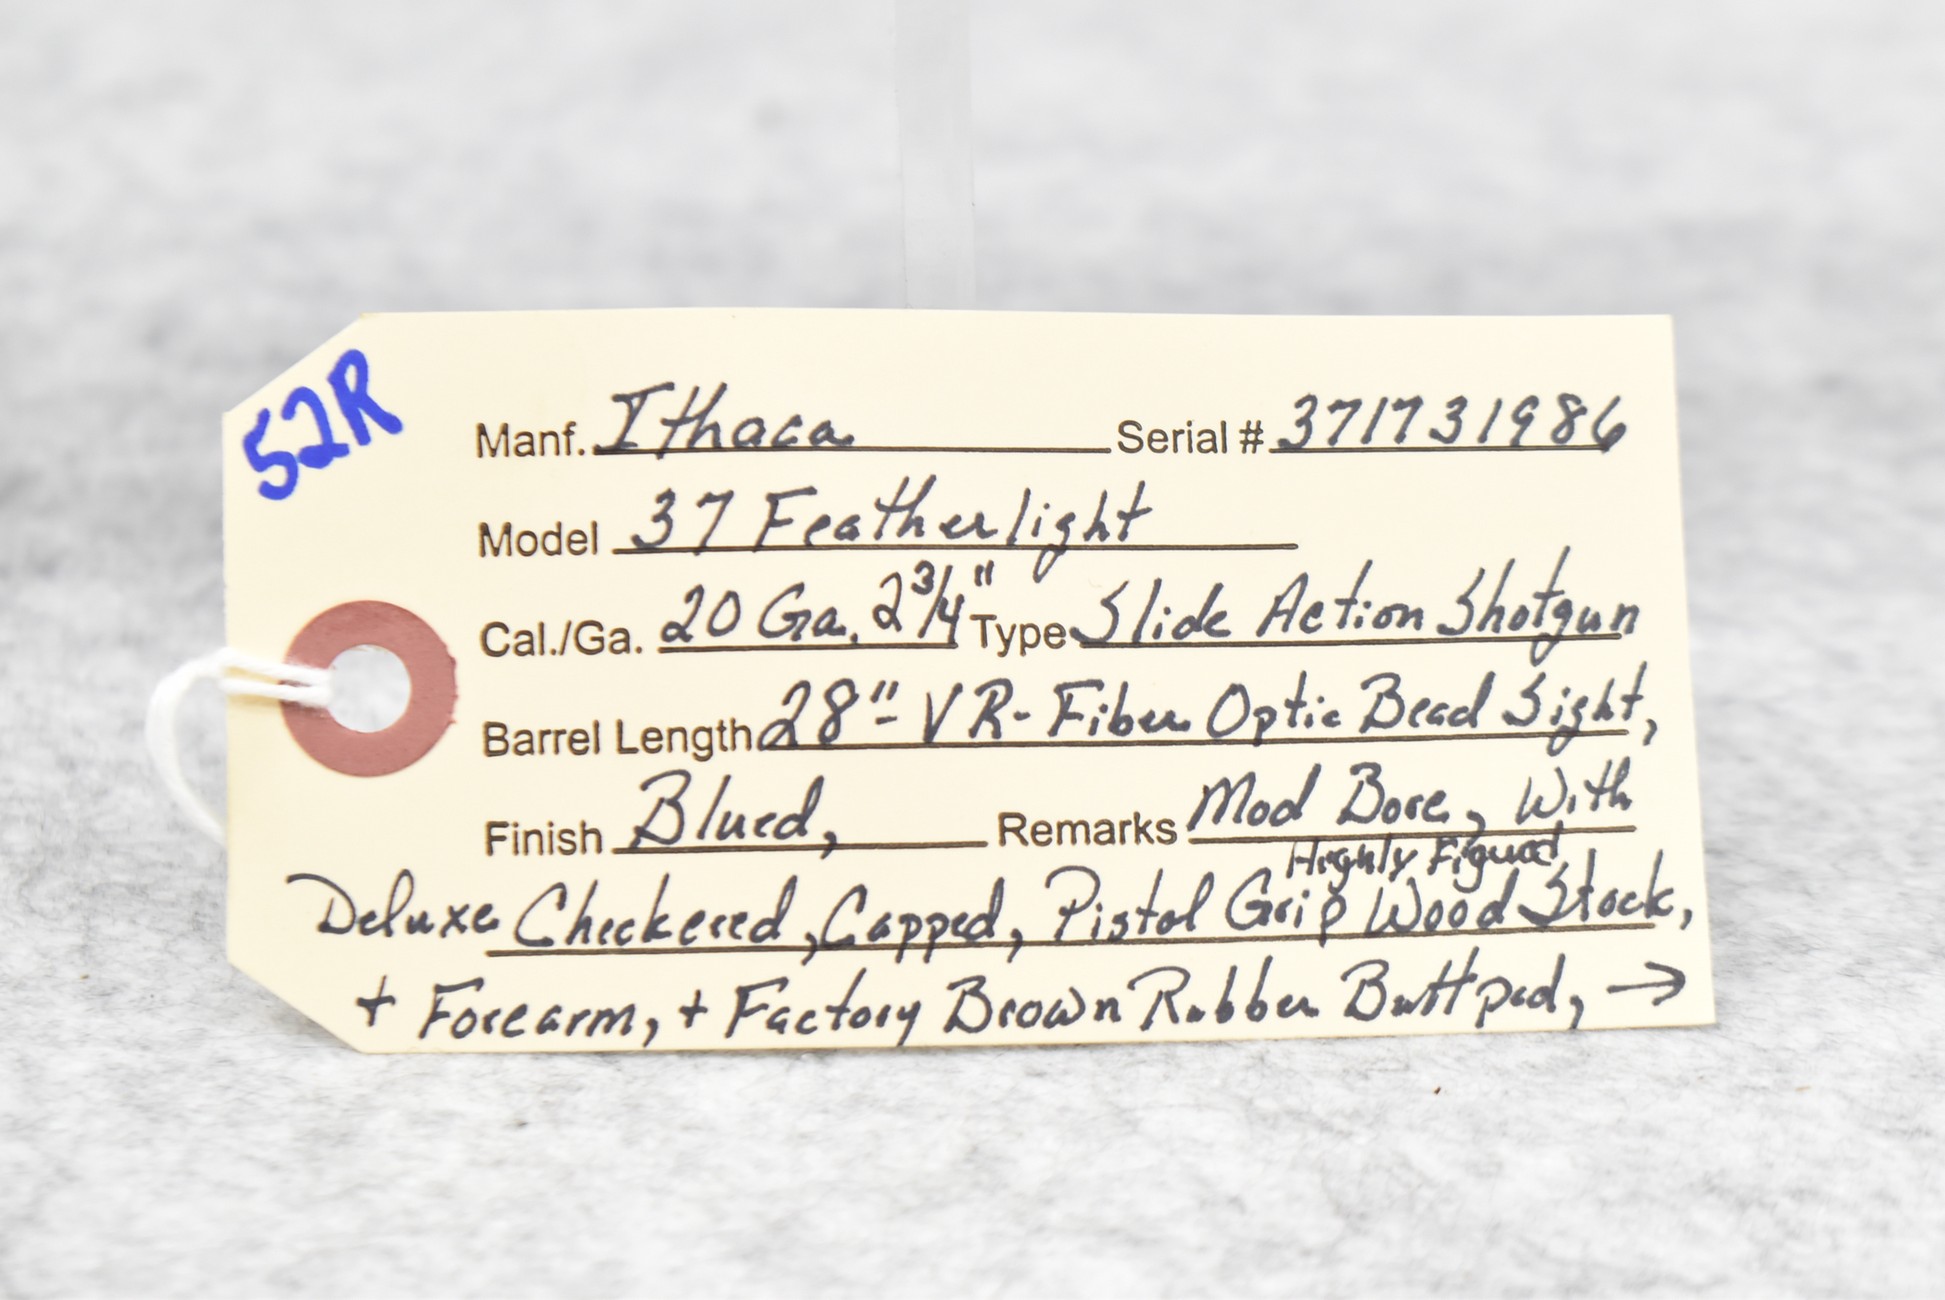 52R
Manf. Ithaca Serial # 371731986
Model 37 Featherlight
Cal./Ga. 20 Ga. 2 3/4" Type Slide Action Shotgun
Barrel Length 28" - VR - Fiber Optic Bead Sight,
Finish Blued, Remarks Mod Bore, With
Highly Figured
Deluxe Checkered, Capped, Pistol Grip Wood Stock,
+ Forearm, + Factory Brown Rubber Buttpad, →